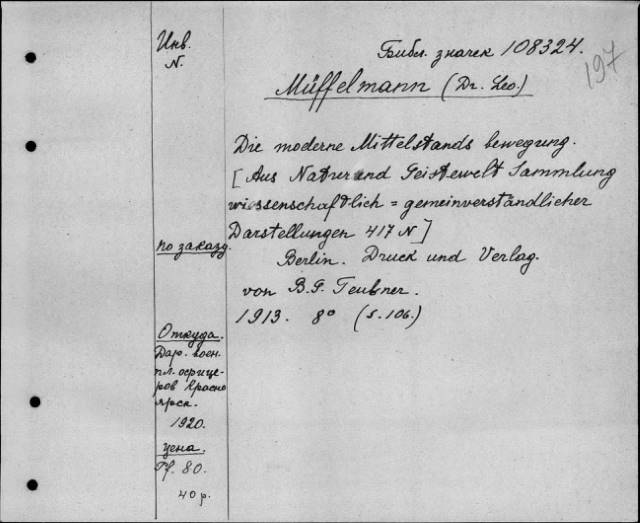 Инв.
N.
Библ. значек 108324.
197
Müffelmann (Dr. Leo.)
Die moderne Mittelstands bewegung.
[Aus Natur and Geistewelt Sammlung
wissenschaftlich = gemeinverständlicher
Darstellungen 417 N]
по заказу.
Berlin. Druck und Verlag.
von B. G. Teubner.
1913. 8° (S. 106.)
Откуда.
Дар. воен.
пл. офице-
ров Красно
ярск.
1920.
цена.
Pf. 80.
40 р.